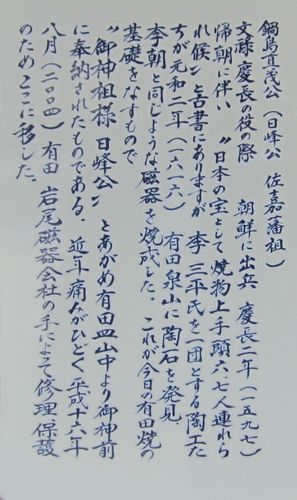 鍋島直茂公（日峰公 佐嘉藩祖）
文禄慶長の役の際 朝鮮に出兵 慶長二年（一五九七）
帰朝に伴い〝日本の宝として焼物上手頭六七人連れら
れ候〟と古書にありますが 李三平氏を一団とする陶工た
ちが元和二年（一六一六） 有田泉山に陶石を発見、
李朝と同じような磁器を焼成した。これが今日の有田焼の
基礎をなすもので
〝御神祖様 日峰公〟とあがめ有田皿山中より御神前
に奉納されたものである。近年痛みがひどく平成十六年
八月（二〇〇四）有田 岩尾磁器会社の手によって修理 保哉
のためここに移した。